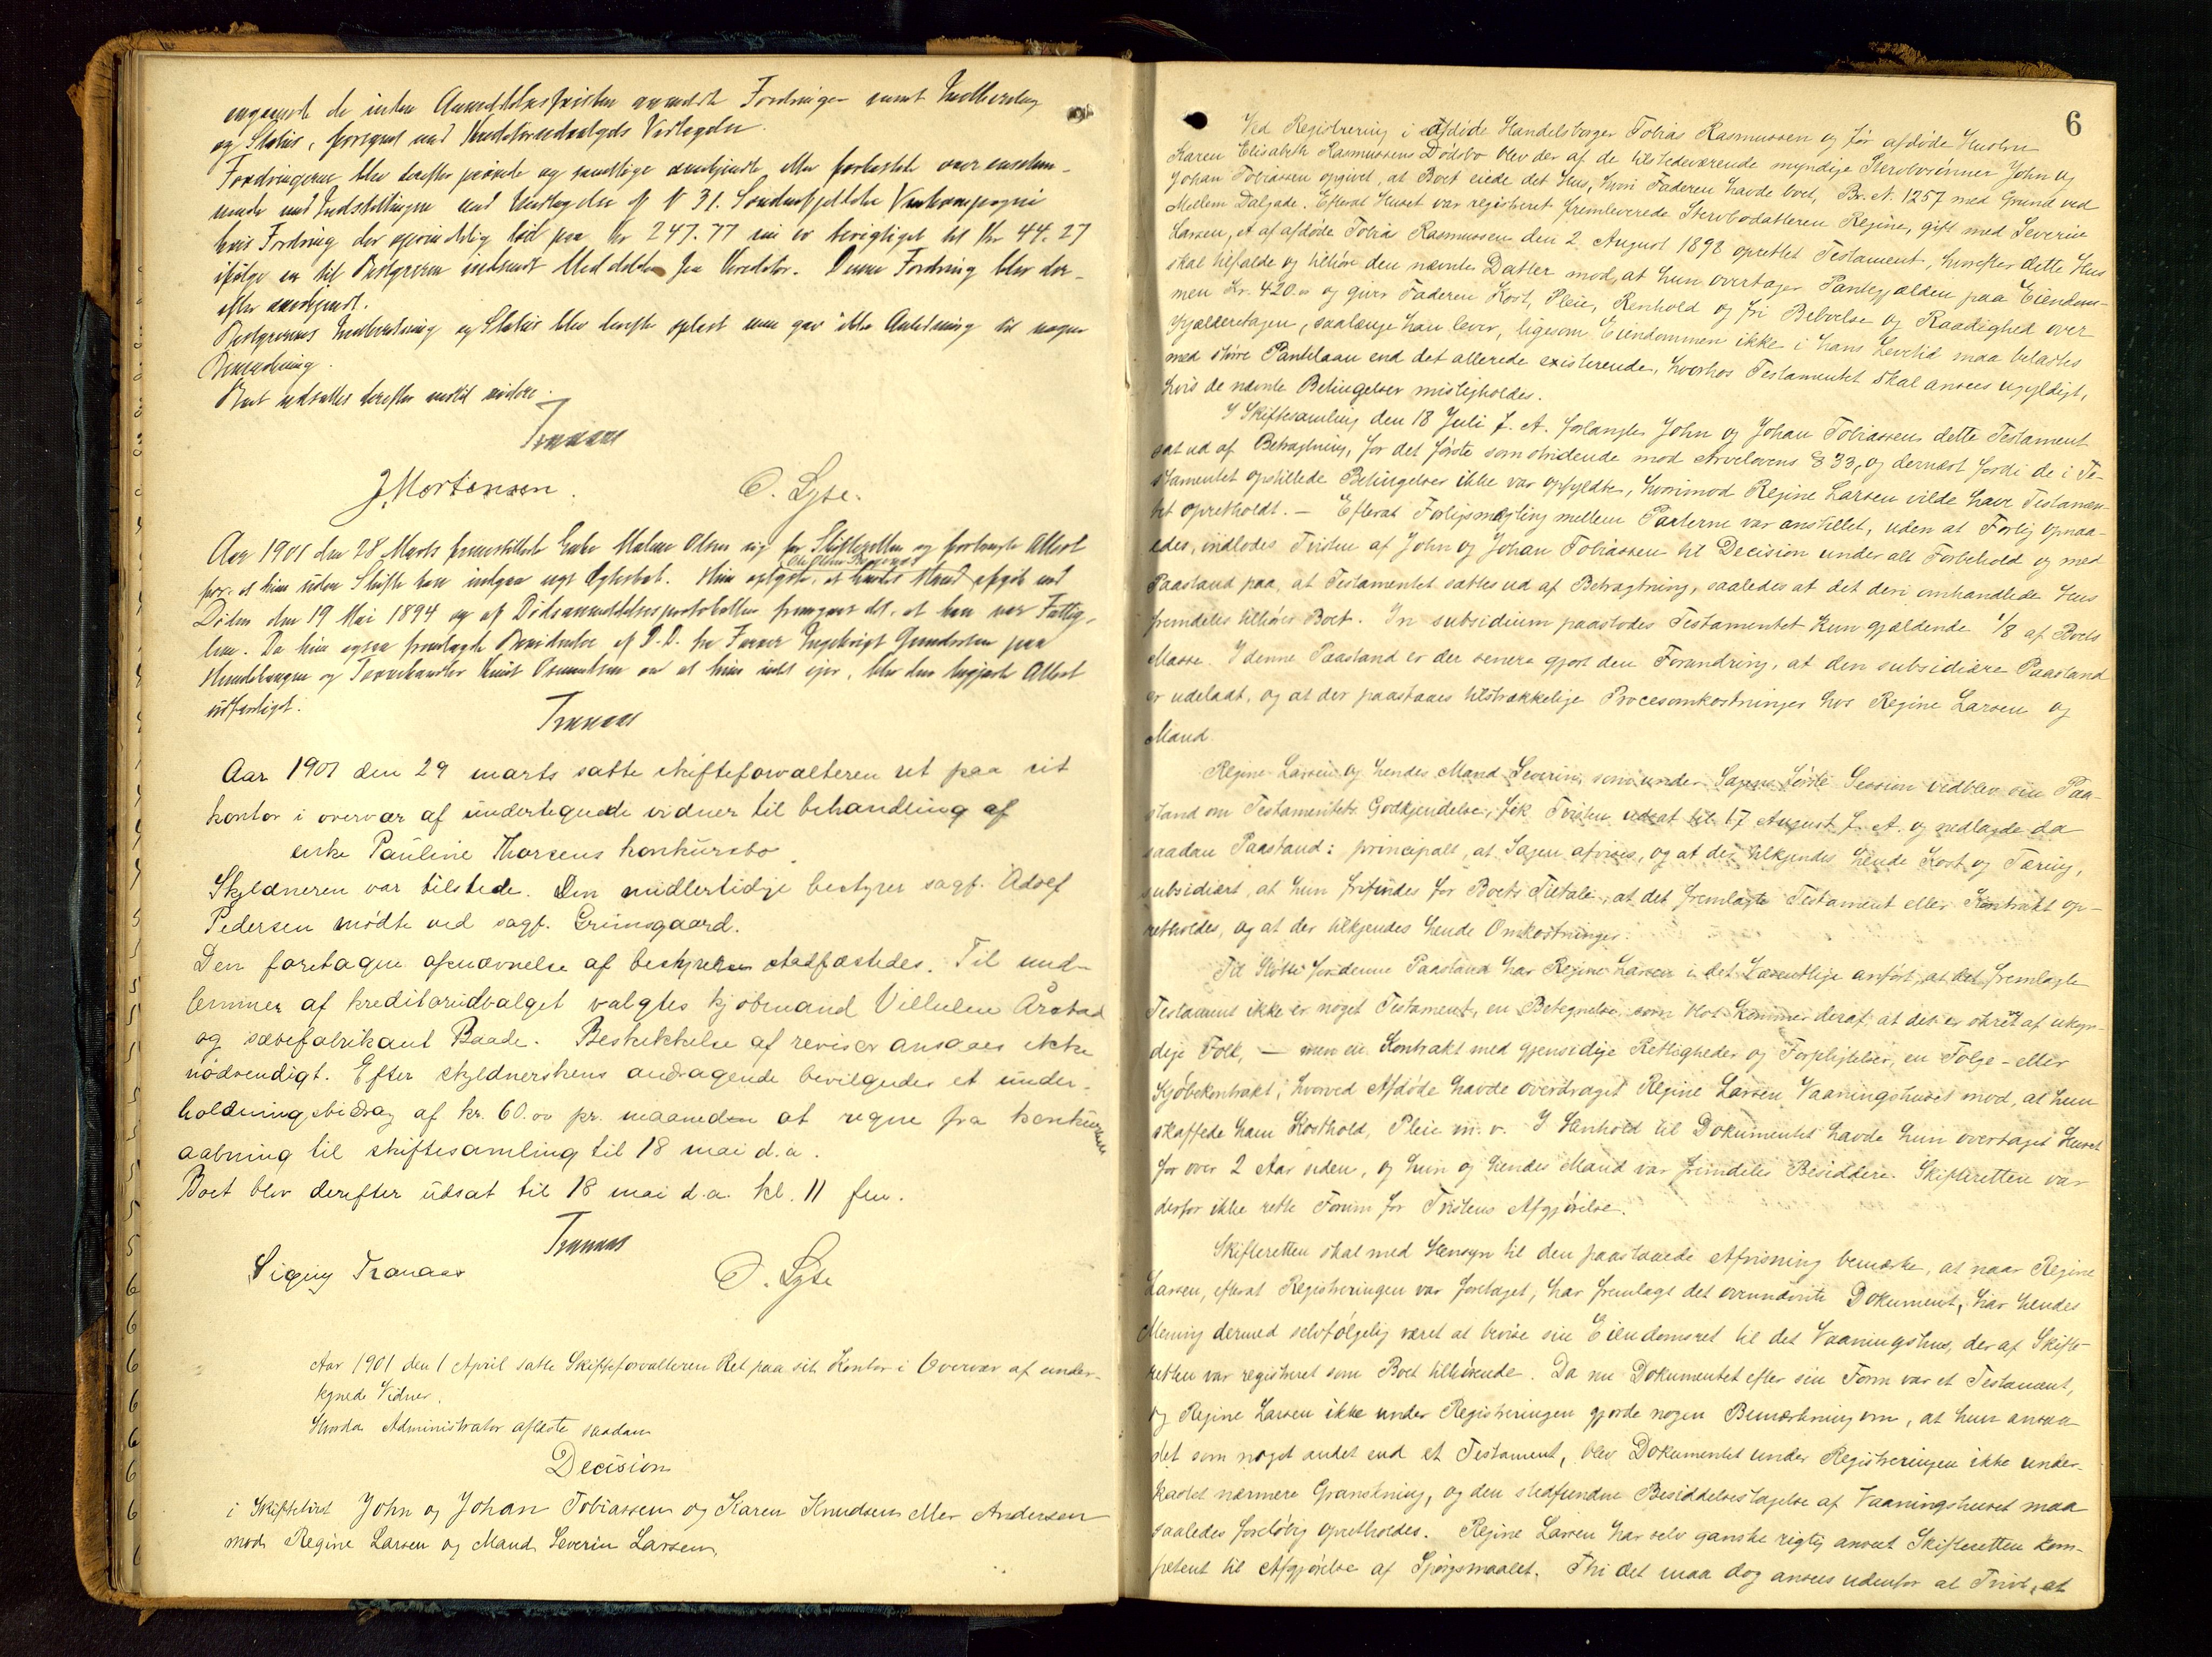 angaaende de inden Anmeldelsesfristen anmeldte Fordringer samt Indberetning
og Status, forsynet med Kreditorudvalgets Vedtegelse.
Fordringerne blev derefter prøvede og samtlige anerkjendte eller forkastede overensstem-
mende med Indstillingen med Undtagelse af N 31. Søndenfjeldske Verkompagni
hvis Fordring der oprindelig lød paa kr 247.77 nu er berigtiget til Kr 44.27
ifølge en til Bestyreren indsendt Meddelelse fra Kreditor. Denne Fordring blev der-
efter anerkjendt.
Bestyrerens Indberetning og Status blev derefter oplæst men gav ikke Anledning til nogen
Bemerkning.
Boet udsattes derefter indtil videre.
Tranaas
J. Mortensen.
O. Lyse.
Aar 1901 den 28 Marts fremstillede Enke Malene Olsen sig for Skifteretten og forlangte Attest
for at hun uden Skifte kan indgaa nyt Ægteskab. Hun oplyste, at hendes Mand afgik ved
Døden den 19 Mai 1894 og af Dødsanmeldelsesprotokollen fremgaar det, at han var Fattig-
lem. Da hun ogsaa fremlagde Bevidnelse af D.D. fra Ingebrigt Gundersen paa
og Knut Osmundsen om at hun intet ejer, blev den begjærte Attest
udfærdiget.
Tranaas
Aar 1901 den 29 marts satte skifteforvalteren ret paa sit
kontor i overvær af undertegnede vidner til behandling af
enke Pauline Thorsens konkursbo.
Skyldneren var tilstede. Den midlertidige bestyrer sagf. Adolf
Pedersen mødte ved sagf. Grimsgaard.
Den foretagne opnævnelse af bestyrelse stadfæstedes. Til med-
lemmer af kreditorudvalget valgtes kjøbmand Villulm Årstad
og sæbefabrikant Baade. Beskikkelse af revisor ansaaes ikke
nødvendigt. Efter skyldnerskens andragende bevilgedes et under-
holdningsbidrag af kr. 60.00 pr. maaneden at regne fra konkursens
aabning til skiftesamling til 18 mai d.a.
Boet blev derefter udsat til 18 mai d.a. kl. 11 fm.
Tranaas
Signy Tranaas
O. Lyse
Aar 1901 den 1 April satte Skifteforvalteren Ret paa sit Kontor i Overvær af under-
tegnede Vidner.
Hvorda Administrator afsagde saadan
Decision
i Skiftetvist John og Johan Tobiassen og Karen Knudsen eller Andersen
mod Regine Larsen og Mand Severin Larsen,
6
Ved Registrering i afdøde Handelsborger Tobias Rasmussen og før afdøde Hustru
Karen Elisabeth Rasmussens Dødsbo blev der af de tilstedeværende myndige Stervbosønner John og
Johan Tobiassen opgivet, at Boet eiede det Hus, hvori Faderen havde boet, Br. N. 1257 med Grund ved
Mellem Dalgade. Efterat Huset var registreret fremleverede Stervbodatteren Regine, gift med Severin
Larsen, et af afdøde Tobias Rasmussen den 2. August 1898 oprettet Testament, hvorefter dette Hus
skal tilfalde og tilhøre den nævnte Datter mod, at hun overtager Pantegjælden paa Eiendom-
men Kr. 420.00 og giver Faderen Kost, Pleie, Renhold og fri Beboelse og Raadighed over
Kjælderetagen, saalænge han lever, ligesom Eiendommen ikke i hans Levetid maa belastes
med større Pantelaan end det allerede existerende, hvorhos Testamentet skal ansees ugyldigt,
hvis de nævnte Betingelser misligholdes.
I Skiftesamling den 18 Juli f. A. forlangte John og Johan Tobiassen dette Testament
sat ud af Betragtning, for det første som stridende mod Arvelovens § 33, og dernæst fordi de i Te-
stamentet opstillede Betingelser ikke var opfyldte, hvorimod Regine Larsen vilde have Testamen-
tet opretholdt. — Efterat Forligsmægling mellem Parterne var anstillet, uden at Forlig opnaa-
edes, indlodes Tvisten af John og Johan Tobiassen til Decision under alt Forbehold og med
Paastand paa, at Testamentet sattes ud af Betragtning, saaledes at det deri omhandlede Hus
fremdeles tilhører Boet. In subsidium paastodes Testamentet kun gjældende 1/8 af Boets
Masse. I denne Paastand er der senere gjort den Forandring, at den subsidiære Paastand
er udeladt, og at der paastaaes tilstrækkelige Procesomkostninger hos Regine Larsen og
Mand.
Regine Larsen og hendes Mand Severin, som under Sagens første Session vedblev sin Paa-
stand om Testamentets Godkjendelse, fik Tvisten udsat til 17 August f. A. og nedlagde da
saadan Paastand: principalt, at Sagen afvises, og at der tilkjendes hende Kost og Tæring,
subsidiært, at hun frifindes for Boets Tiltale, at det fremlagte Testament eller Kontrakt op-
retholdes, og at der tilkjendes hende Omkostninger.
Til Støtte for denne Paastand har Regine Larsen i det Væsentlige anført, at det fremlagte
Testament ikke er noget Testament, en Betegnelse, som blot kommer deraf, at det er skrevet af ukyn-
dige Folk, — men en Kontrakt med gjensidige Rettigheder og Forpligtelser, en Følge- eller
Kjøbekontrakt, hvorved Afdøde havde overdraget Regine Larsen Vaaningshuset mod, at hun
skaffede ham Kosthold, Pleie m. v. I Henhold til Dokumentet havde hun overtaget Huset
for over 2 Aar siden, og hun og hendes Mand var fremdeles Besiddere. Skifteretten var
derfor ikke rette Forum for Tvistens Afgjørelse.
Skifteretten skal med Hensyn til den paastaaede Afvisning bemærke, at naar Regine
Larsen, efterat Registreringen var foretaget, har fremlagt det ovennævnte Dokument, har hendes
Mening dermed selvfølgelig været at bevise sin Eiendomsret til det Vaaningshus, der af Skifte-
retten var registreret som Boet tilhørende. Da nu Dokumentet efter sin Form var et Testament,
og Regine Larsen ikke under Registreringen gjorde nogen Bemærkning om, at hun ansaa
det som noget andet end et Testament, blev Dokumentet under Registreringen ikke under-
kastet nærmere Granskning, og den stedfundne Besiddelsestagelse af Vaaningshuset maa
saaledes foreløbig opretholdes. Regine Larsen har selv ganske rigtig anseet Skifteretten kom-
petent til Afgjørelse af Spørgsmaalet. Thi det maa dog ansees udenfor al Tvivl, at